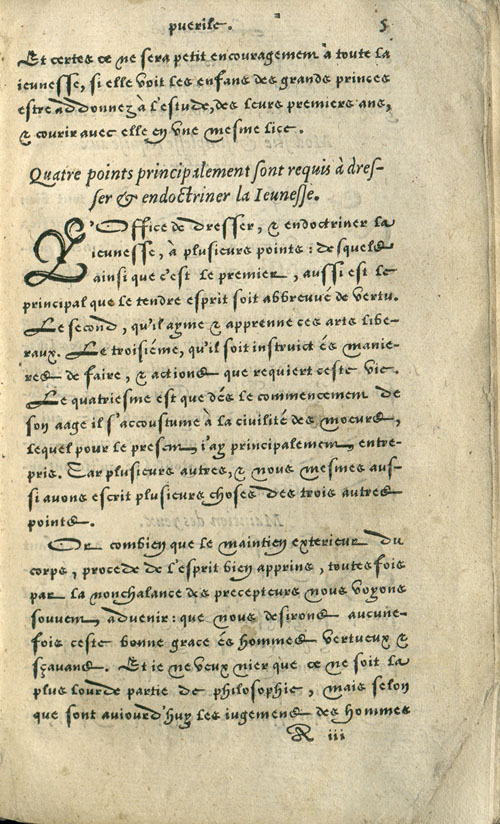 puerile. 5
Et certes ce ne sera petit encouragement à toute la
ieunesse, si elle voit les enfans des grands princes
estre addonnez a l'estude, des leurs premiers ans,
& courir avec elle en vne mesme lice.
Quatre points principalement sont requis à dres-
ser & endoctriner la Ieunesse.
L'Office de dresser, & endoctriner la
ieunesse, à plusieurs points: desquels
ainsi que c'est le premier, aussi est le
principal que le tendre esprit soit abbreuvé de vertu.
Le second, qu'il ayme & apprenne ces arts libe-
raux. Le troisiéme, qu'il soit instruict és manie-
res de faire, & actions que requiert ceste vie.
Le quatriesme est que dés le commencement de
son aage il s'accoustume à la civilité des moeurs,
lequel pour le present i'ay principalement entre-
pris. Car plusieurs autres, & nous mesmes aus-
si avons escrit plusieurs choses des trois autres
points.
Or combien que le maintien exterieur du
corps, procede de l'esprit bien apprins, toutesfois
par la nonchalance des precepteurs nous voyons
souvent advenir: que nous desirons aucune-
fois ceste bonne grace és hommes vertueux &
sçavans. Et ie ne veux nier que ce ne soit la
plus lourde partie de philosophie, mais selon
que sont auiourd'huy les iugemens des hommes
A iii